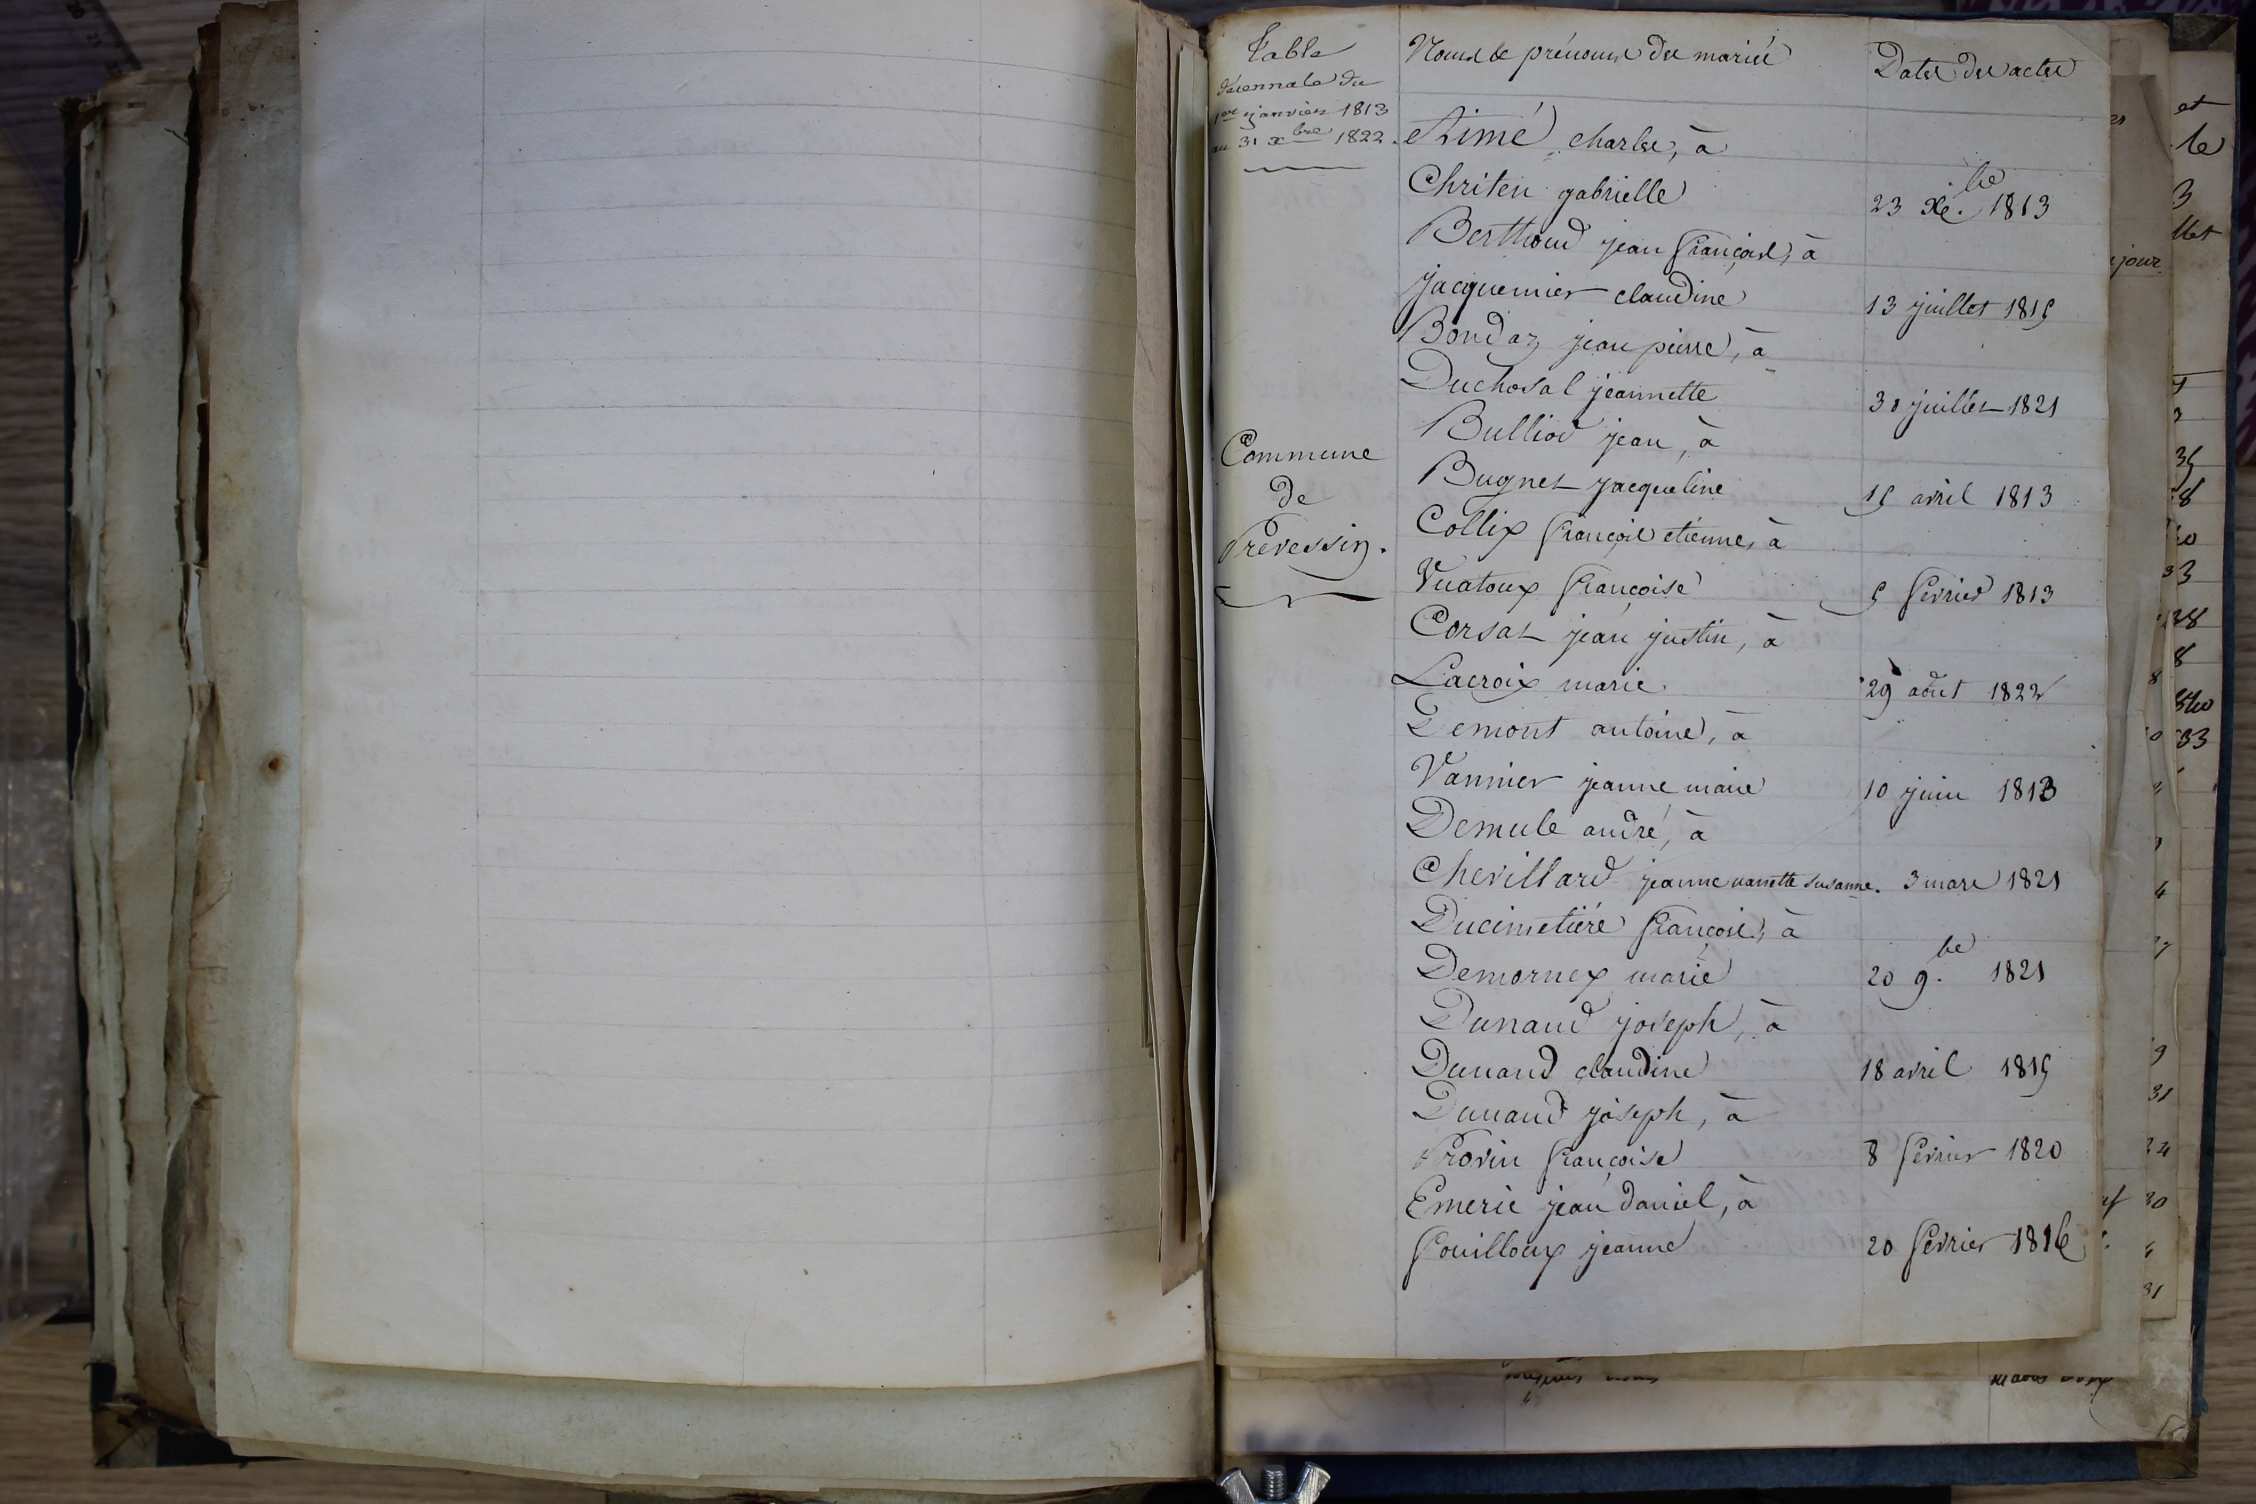 Table
décennale du
1er janvier 1813
au 31 xbre 1822.
Commune
de
Prevessin.
Noms & prénoms des mariés
Dates des actes
Aimé charles, à
Chriten gabrielle 23 Xe.bre 1813
Berthoud jean françois, à
Jacquemier claudine 13 juillet 1815
Bondaz jean pierre, à
Duchosal jeannette 30 juillet 1821
Bulliod jean, à
Bugnet jacqueline 15 avril 1813
Collix françois etienne, à
Vuatoux françoise 5 fevrier 1813
Corsat jean justin, à
Lacroix marie 29 août 1822
Demont antoine, à
Vannier jeanne marie 10 juin 1813
Demule andré, à
Chevillard jeanne nanette susanne. 3 mars 1821
Ducimetière françois, à
Demornex marie 20 9.bre 1821
Dunand joseph, à
Dunand claudine 18 avril 1815
Dunand joseph, à
Provin françoise 8 fevrier 1820
Emeric jean daniel, à
Fouilloux jeanne 20 fevrier 1816